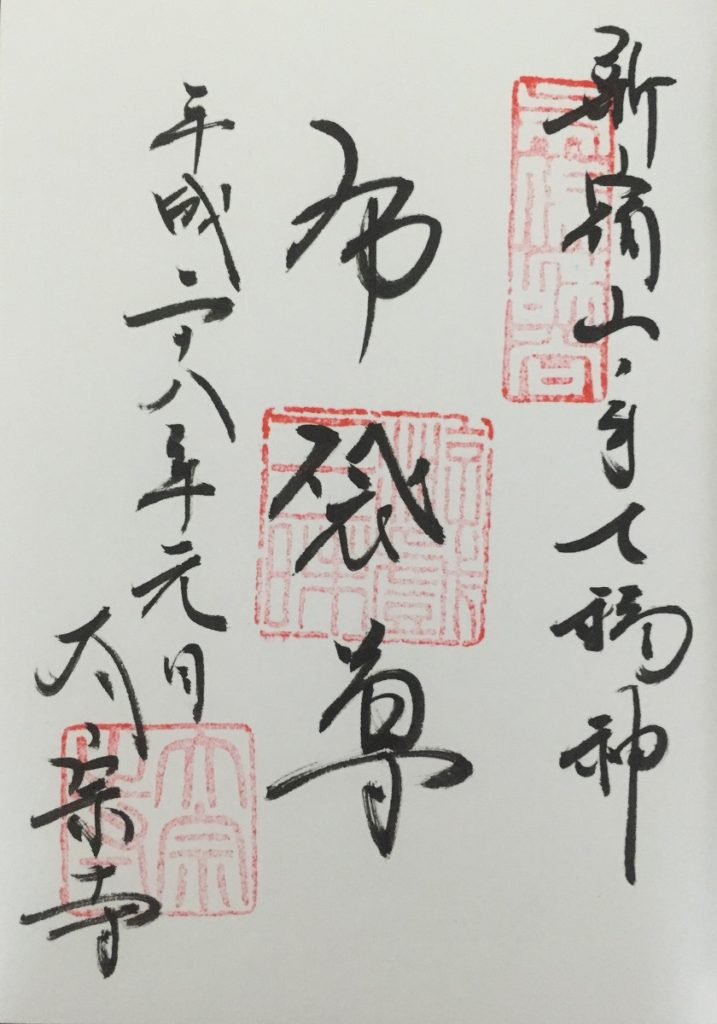 新宿山ノ手七福神
布袋尊
平成二十八年元旦
太宗寺